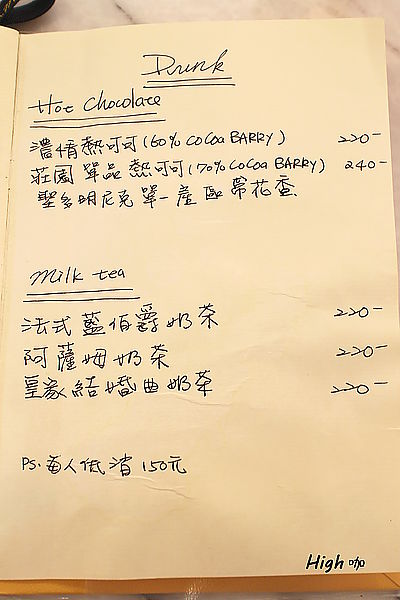 Drink
Hot Chocolate
濃情熱可可(60% COCOA BARRY) 220-
莊園單品熱可可(70% COCOA BARRY) 240-
聖多明尼克單一產區帶花香
Milk tea
法式藍伯爵奶茶 220-
阿薩姆奶茶 220-
皇家結婚曲奶茶 220-
PS.每人低消150元
High咖